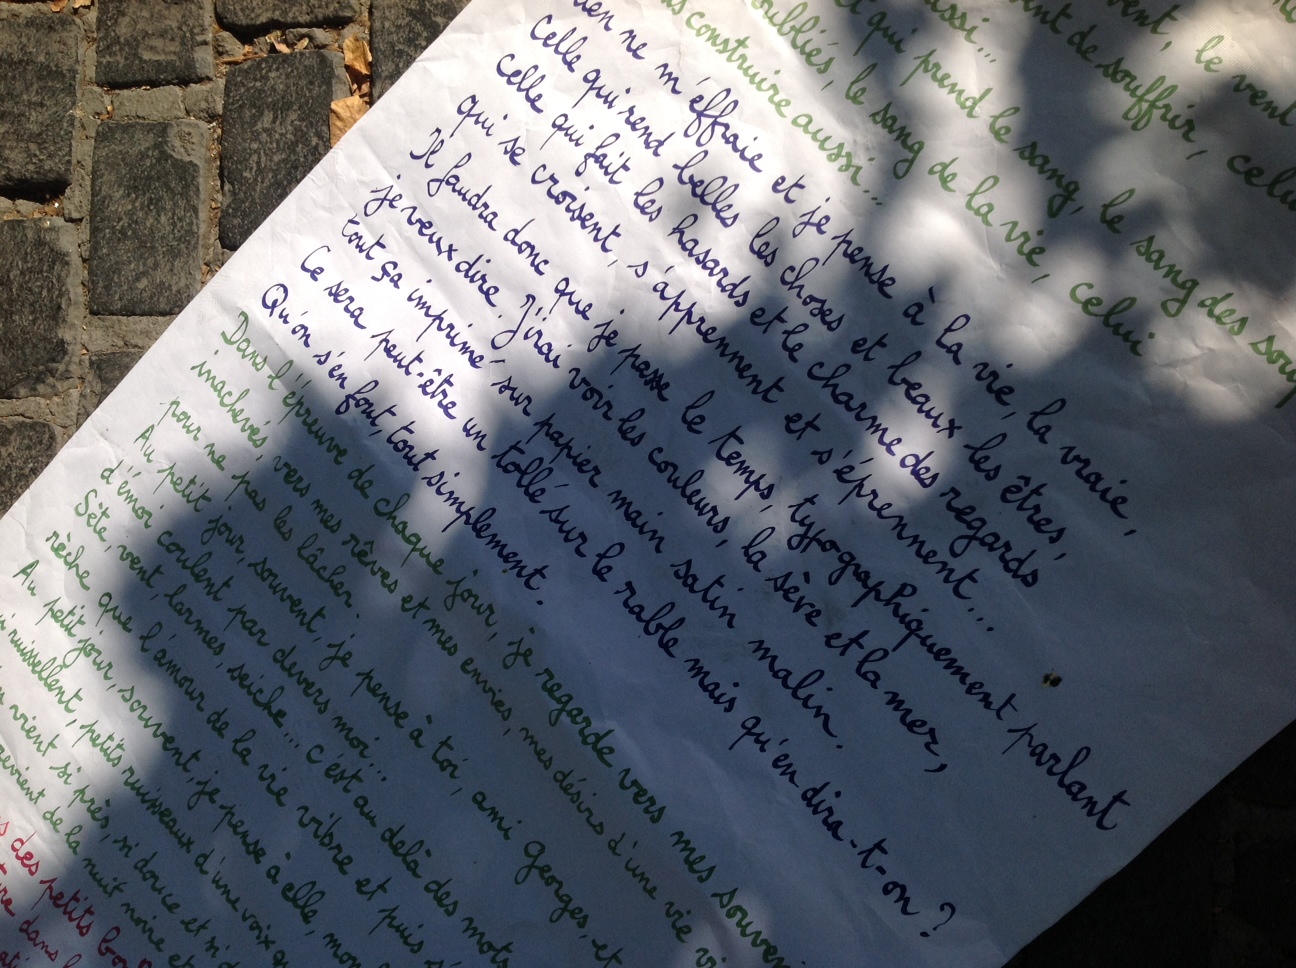 vent, le vent
aussi...
ent de souffrir, celui
et qui prend le sang, le sang des
oubliés, le sang de la vie, celui
construire aussi...
ne m'effraie et je pense à la vie, la vraie,
Celle qui rend belles les choses et beaux les êtres,
Celle qui fait les hasards et le charme des regards
qui se croisent, s'apprennent et s'éprennent...
Il faudra donc que je passe le temps, typographiquement parlant
je veux dire. J'irai voir les couleurs, la sève et la mer,
tout ça imprimé sur papier main satin malin.
Ce sera peut-être un tollé sur le rable mais qu'en dira-t-on ?
Qu'on s'en fout, tout simplement.
Dans l'épreuve de chaque jour, je regarde vers mes
inachevés, vers mes rêves et mes envies, mes désirs d'une vie
pour ne pas les lâcher.
Au petit jour, souvent, je pense à toi, ami Georges, et
d'émoi coulent par devers moi...
Sète, vent, larmes, seiche... c'est au delà des mots
rèche que l'amour de la vie vibre et puis
Au petit jour, souvent, je pense à elle,
ruissellent, petits ruisseaux d'une voix
vient si près, si douce et si
revient de la nuit noire et
des petits
dans